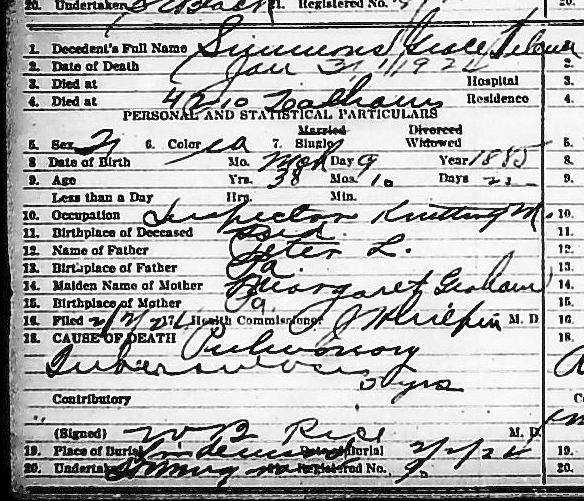 20. Undertaker 21. Registered No.
1. Decedent's Full Name Simmons Grace
2. Date of Death Jan 31 1924
3. Died at Hospital
4. Died at 4210 Residence
PERSONAL AND STATISTICAL PARTICULARS
Married Divorced
5. Sex 6. Color 7. Single Widowed
8 Date of Birth Mo. Mch Day 9 Year 1885
9. Age Yrs. 38 Mos. 10 Days 22
Less than a Day Hrs. Min.
10. Occupation Inspector Knitting M.
11. Birthplace of Deceased Ind.
12. Name of Father Peter L.
13. Birthplace of Father Pa
14. Maiden Name of Mother Margaret Graham
15. Birthplace of Mother Pa.
16. Filed 2/2/24 17. Health Commissioner M. D
18. CAUSE OF DEATH Pulmonary
Tuberculosis
yrs
Contributory
(Signed) W B Rice M. D.
19. Place of Burial Lindenwood Date of Burial 2/2/24
20. Undertaker 21. Registered No.